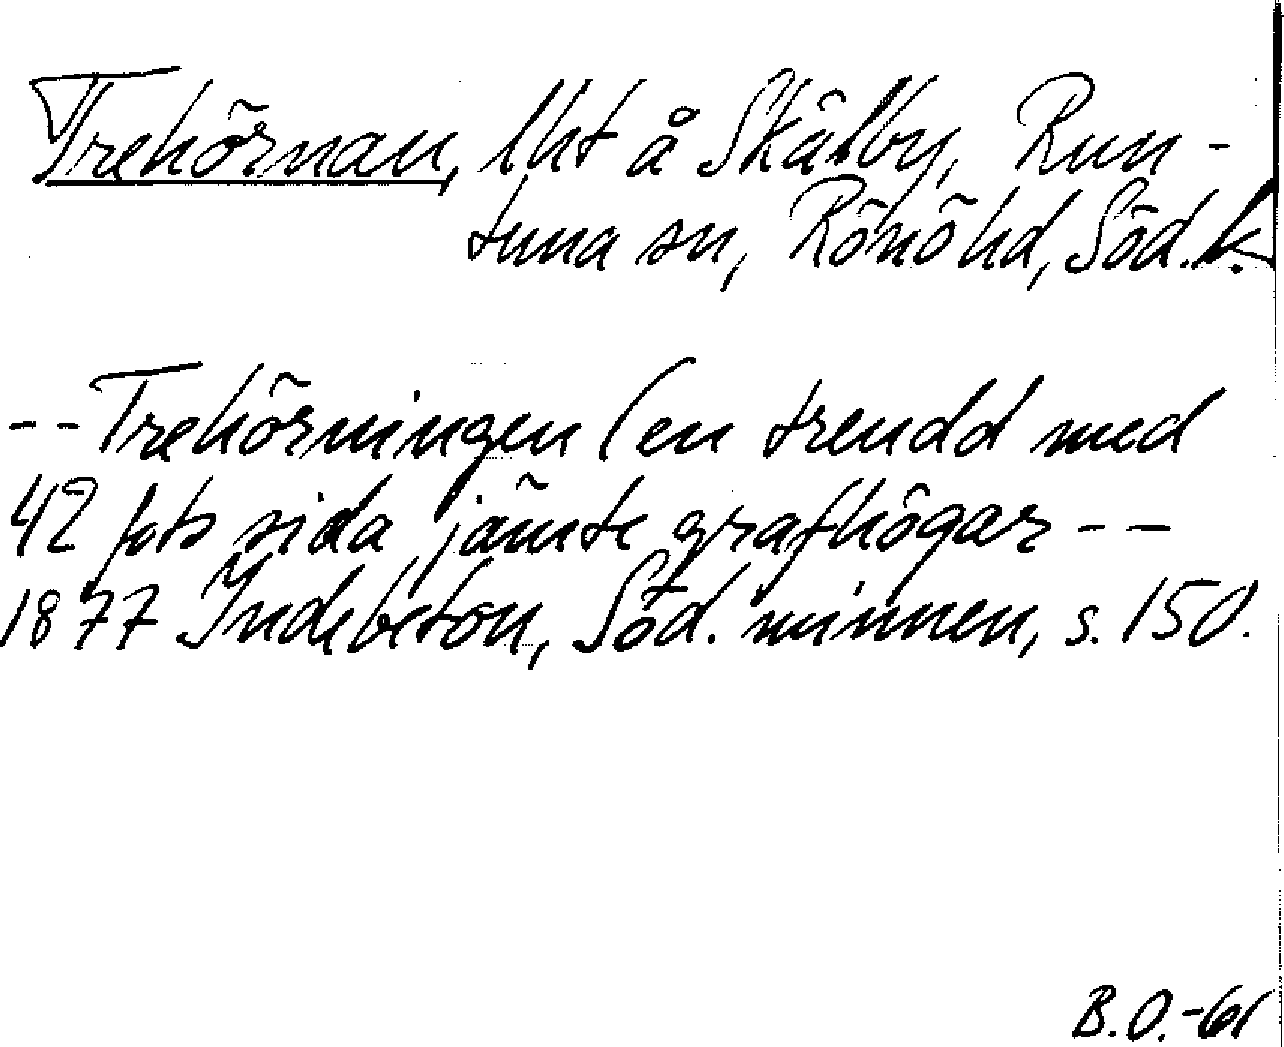 Trehörnan, lht å Skälby, Run-
tuna sn, Rönö hd, Söd. l.
-- Trehörningen (en treudd med
42 fots sida jämte grafhögar --
1877 Indebetou, Söd. minnen, s. 150.
B.O.-61